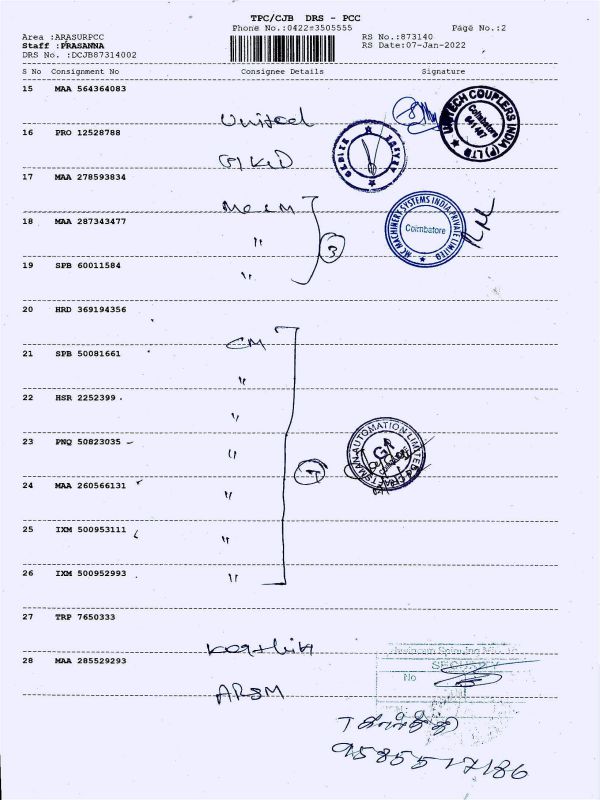 TPC/CJB DRS - PCC
Phone No.:0422#3505555
Page No.:2
Area :ARASURPCC
RS No.:873140
Staff :PRASANNA
RS Date:07-Jan-2022
DRS No. :DCJB87314002
S No Consignment No Consignee Details Signature
15 MAA 564364083
United
UNITECH COUPLERS INDIA (P) LTD
Coimbatore
641 407
16 PRO 12528788
17 MAA 278593834
MC MACHINERY SYSTEMS INDIA PRIVATE LIMITED
Coimbatore
18 MAA 287343477
"
3
19 SPB 60011584
"
20 HRD 369194356
CM
21 SPB 50081661
"
22 HSR 2252399
"
23 PNQ 50823035
"
CRAFTSMAN AUTOMATION LIMITED
24 MAA 260566131
"
25 IXM 500953111
"
26 IXM 500952993
"
27 TRP 7650333
Karthik
28 MAA 285529293
SECURITY
No
ARSM
9585517186